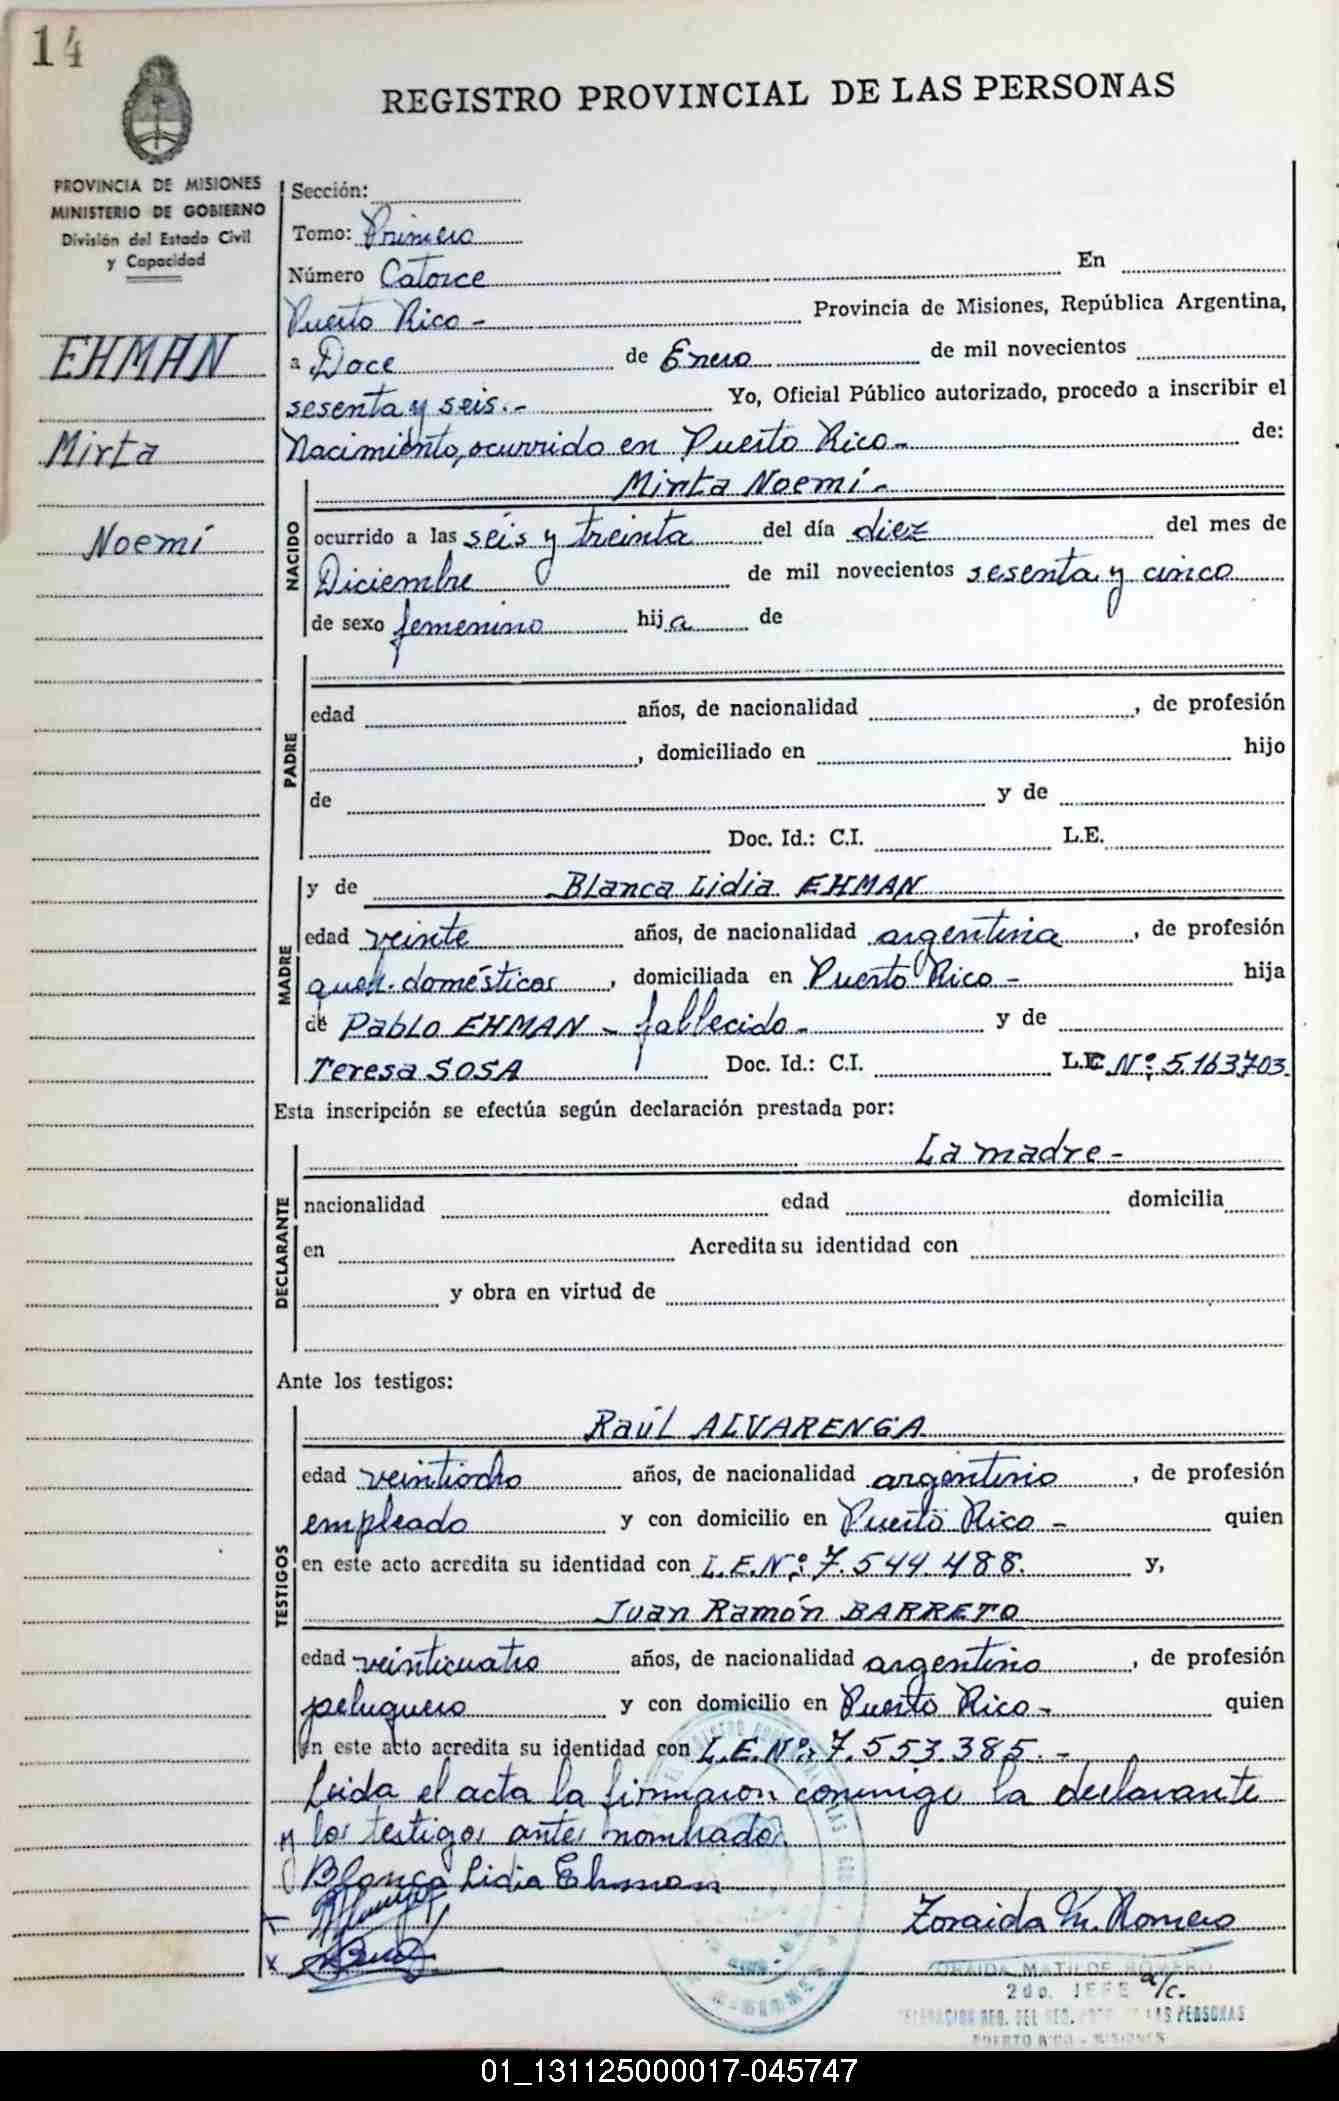 14
REGISTRO PROVINCIAL DE LAS PERSONAS
PROVINCIA DE MISIONES
MINISTERIO DE GOBIERNO
División del Estado Civil
y Capacidad
EHMAN
Mirta
Noemí
Sección:
Tomo: Primero
Número Catorce En
Puerto Rico - Provincia de Misiones, República Argentina,
a Doce de Enero de mil novecientos
sesenta y seis.- Yo, Oficial Público autorizado, procedo a inscribir el
Nacimiento, ocurrido en Puerto Rico - de:
Mirta Noemí -
NACIDO
ocurrido a las seis y treinta del día diez del mes de
Diciembre de mil novecientos sesenta y cinco
de sexo femenino hija de
PADRE
edad años, de nacionalidad , de profesión
, domiciliado en hijo
de y de
Doc. Id.: C.I. L.E.
MADRE
y de Blanca Lidia EHMAN
edad veinte años, de nacionalidad argentina , de profesión
queh. domésticos , domiciliada en Puerto Rico - hija
de Pablo EHMAN - fallecido - y de
Teresa SOSA Doc. Id.: C.I. L.E. Nº: 5.163.703.
Esta inscripción se efectúa según declaración prestada por:
La madre -
DECLARANTE
nacionalidad edad domicilia
en Acredita su identidad con
y obra en virtud de
Ante los testigos:
TESTIGOS
Raúl ALVARENGA
edad veintiocho años, de nacionalidad argentino , de profesión
empleado y con domicilio en Puerto Rico - quien
en este acto acredita su identidad con L.E.Nº: 7.544.488. y,
Juan Ramón BARRETO
edad veinticuatro años, de nacionalidad argentino , de profesión
peluquero y con domicilio en Puerto Rico - quien
en este acto acredita su identidad con L.E.Nº: 7.553.385.-
Leida el acta la firmaron conmigo la declarante
y los testigos antes nombrados.
Blanca Lidia Ehman
Zoraida M. Romero
ZORAIDA MATILDE ROMERO
2do. JEFE a/c.
DELEGACION REG. DEL REG. PROV. DE LAS PERSONAS
PUERTO RICO - MISIONES
01_131125000017-045747